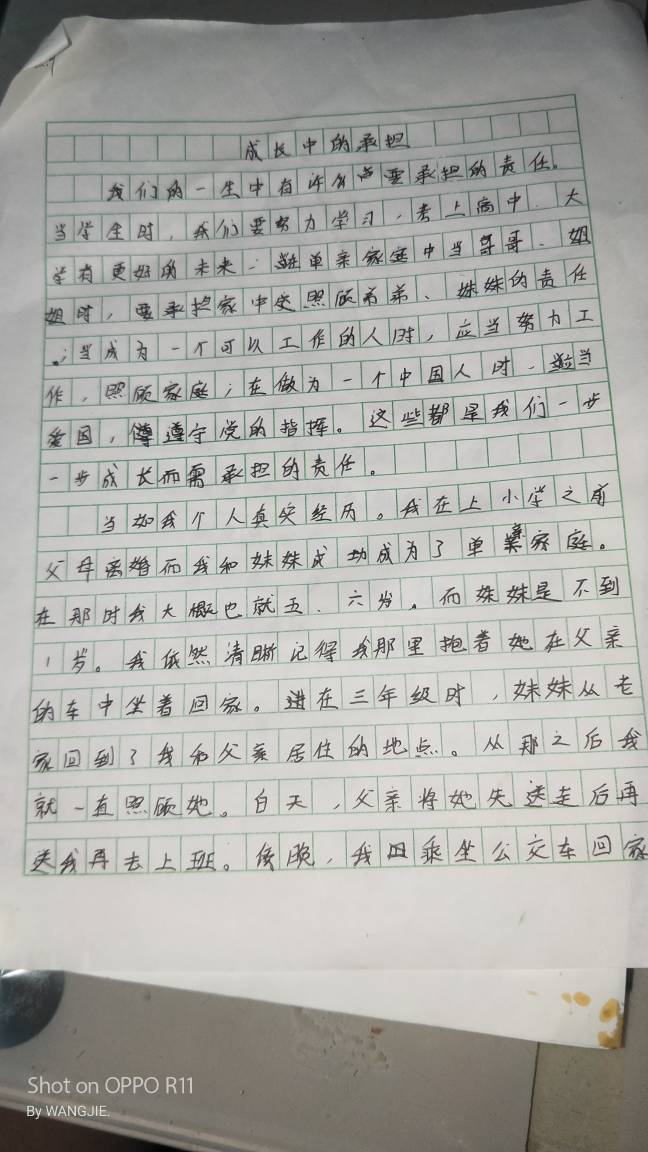 成长中的承担
我们的一生中有许多声要承担的责任。
当学生时，我们要努力学习，考上高中、大
学有更好的未来；在单亲家庭中当哥哥、姐
姐时，要承担家中照顾弟弟、妹妹的责任
；当成为一个可以工作的人时，应当努力工
作，照顾家庭；在做为一个中国人时，当
爱国，遵守党的指挥。这些都是我们一步
一步成长而需承担的责任。
当如我个人真实经历。我在上小学之前
父母离婚而我和妹妹成功成为了单亲家庭。
在那时我大概也就五、六岁。而妹妹是不到
1岁。我依然清晰记得我那里抱着她在父亲
的车中坐着回家。在三年级时，妹妹从老
家回到了我和父亲居住的地点。从那之后我
就一直照顾她。白天，父亲将她先送走后再
送我再去上班。傍晚，我乘坐公交车回家
Shot on OPPO R11
By WANGJIE.